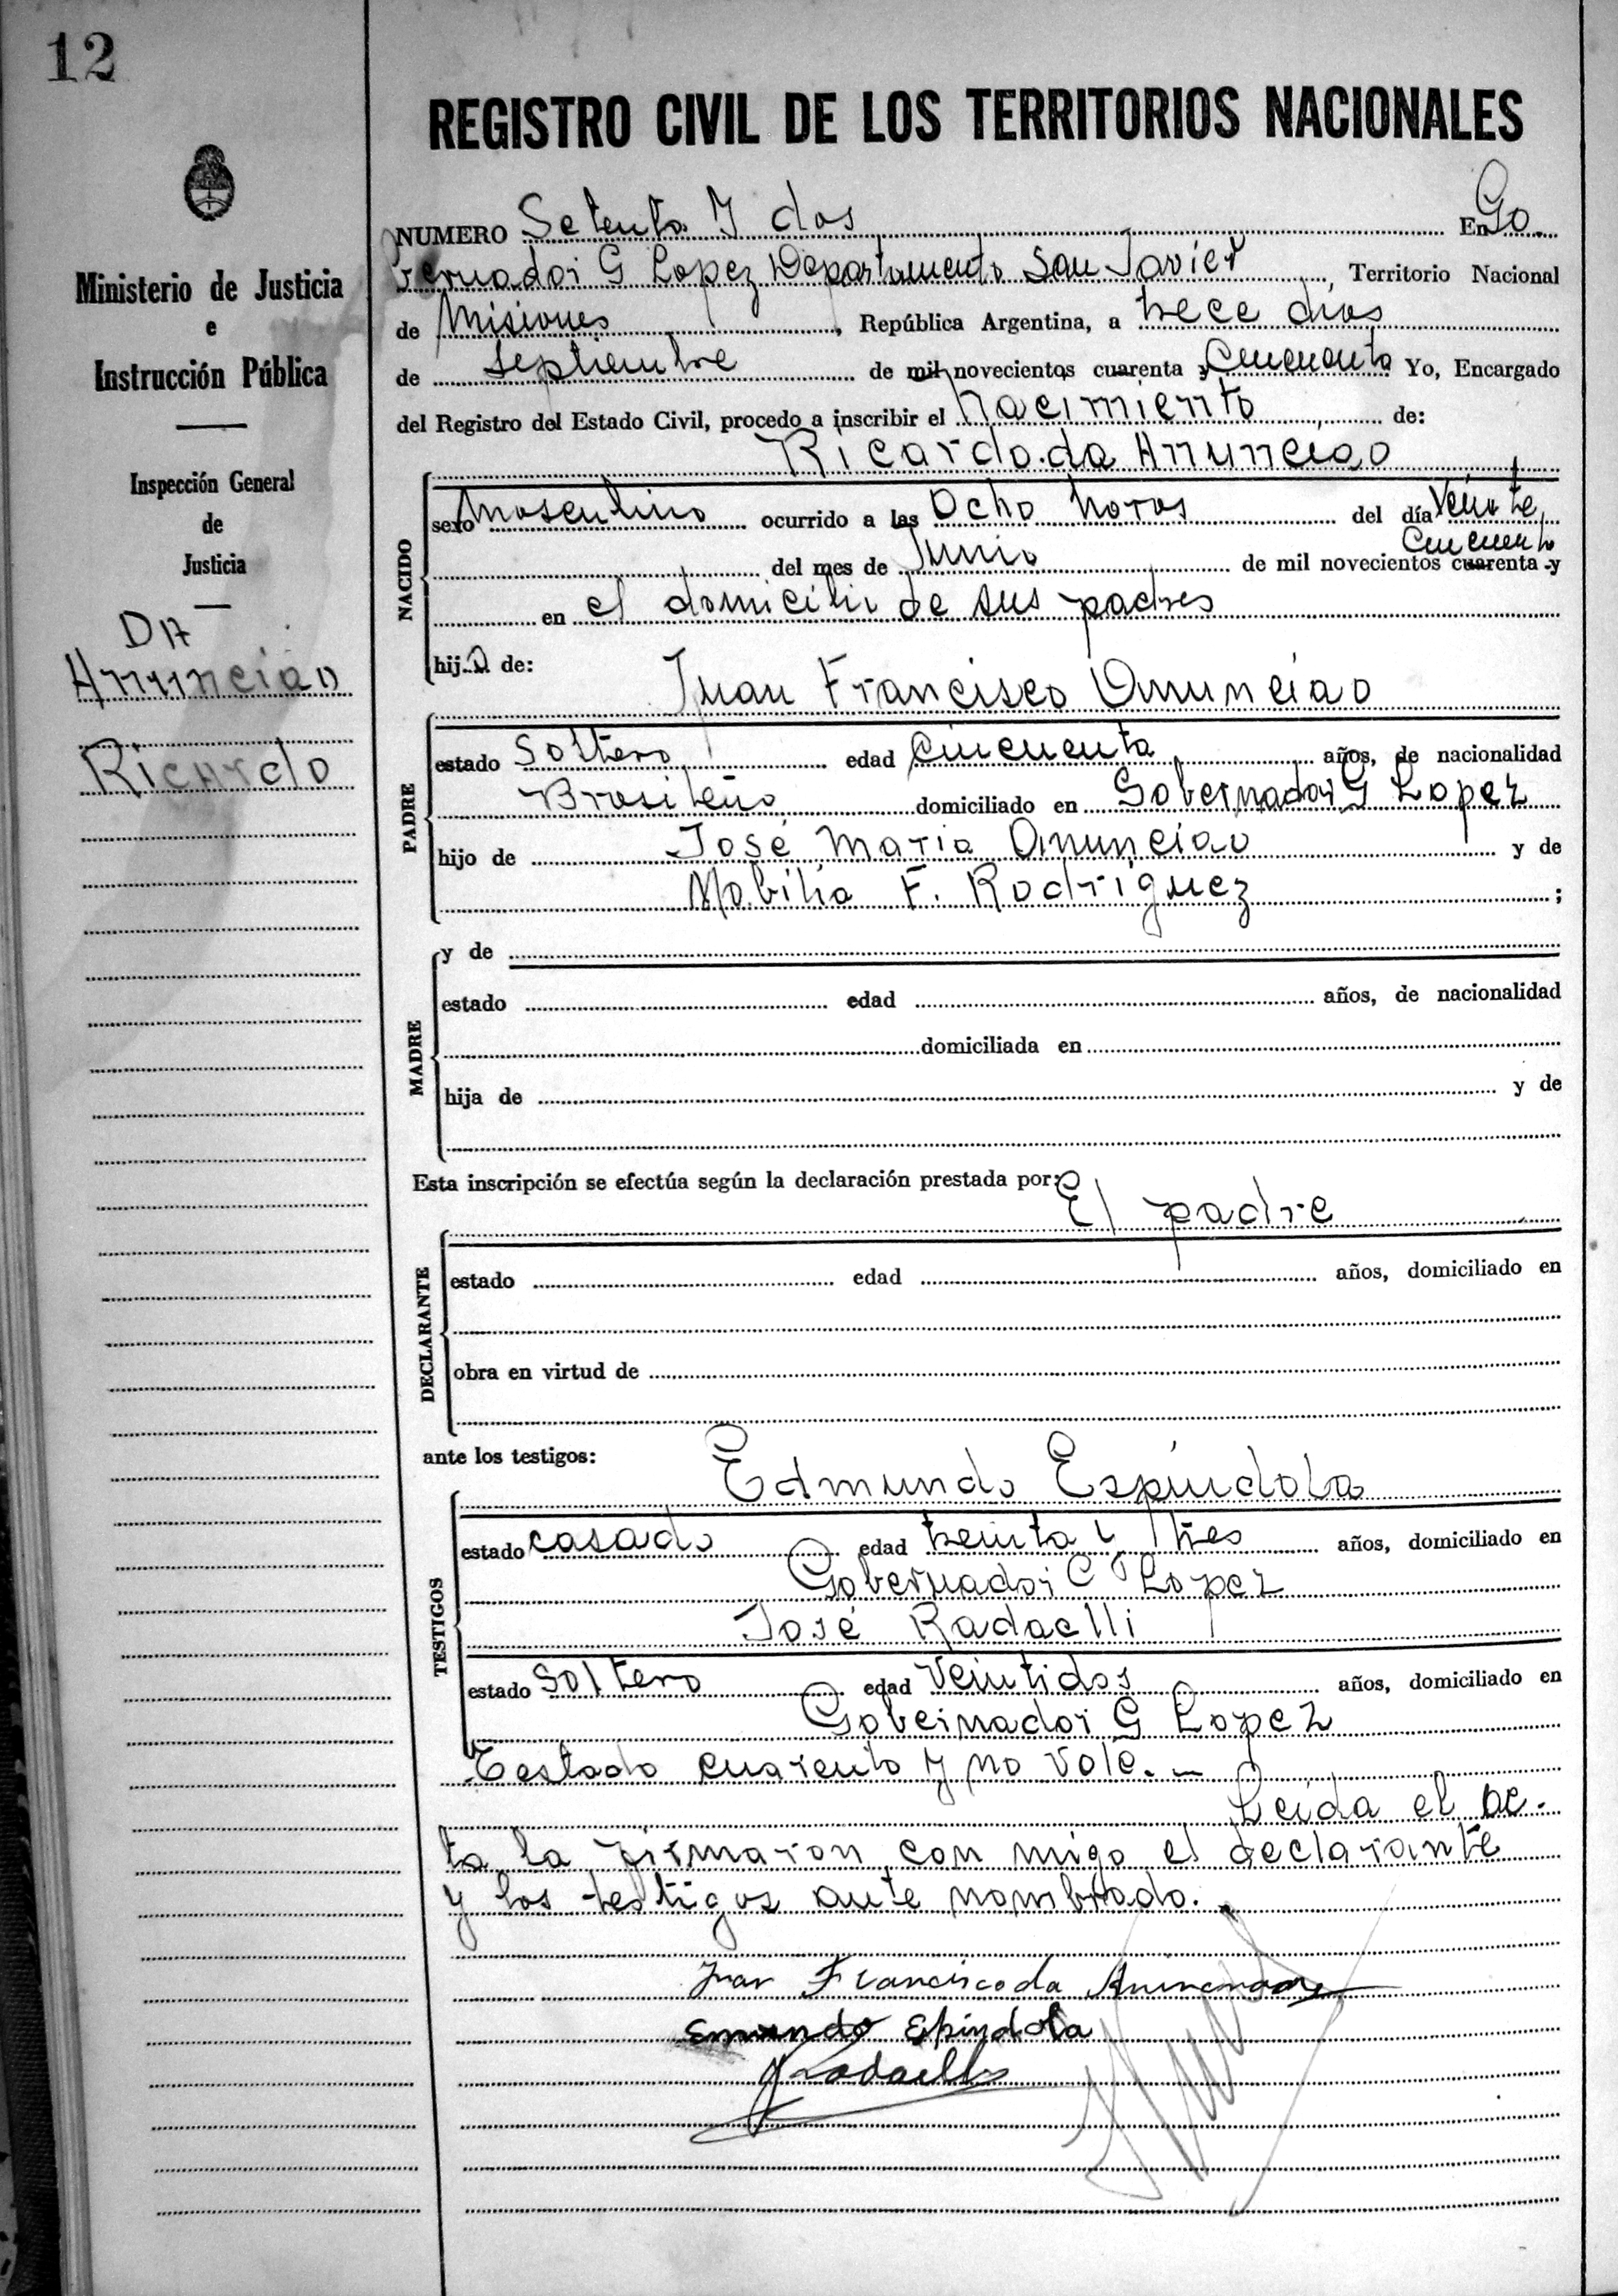 12
REGISTRO CIVIL DE LOS TERRITORIOS NACIONALES
Ministerio de Justicia
e
Instrucción Pública
Inspección General
de
Justicia
DA
Anunciao
Ricardo
NUMERO Setenta Y dos En Go.
vernador G Lopez Departamento San Javier, Territorio Nacional
de Misiones, República Argentina, a trece dias
de septiembre de mil novecientos cuarenta y Cincuenta Yo, Encargado
del Registro del Estado Civil, procedo a inscribir el nacimiento de:
Ricardo da Anunciao
NACIDO
sexo masculino ocurrido a las Ocho horas del día Veinte
Cincuenta
del mes de Junio de mil novecientos cuarenta y
en el domicilio de sus padres
hijo de:
Juan Francisco Anunciao
PADRE
estado Soltero edad cincuenta años, de nacionalidad
Brasileño domiciliado en Gobernador G Lopez
hijo de José Maria Anunciao y de
F. Rodriguez ;
MADRE
y de
estado edad años, de nacionalidad
domiciliada en
hija de y de
Esta inscripción se efectúa según la declaración prestada por:
El padre
DECLARANTE
estado edad años, domiciliado en
obra en virtud de
ante los testigos:
Edmundo Espindola
TESTIGOS
estado casado edad treinta y tres años, domiciliado en
Gobernador G Lopez
José Radaelli
estado soltero edad veintidos años, domiciliado en
Gobernador G Lopez
Testado cuarenta y no vale. -
Leida el ac-
ta la firmaron con migo el declarante
y los testigos ante nombrado.
Juan Francisco da
Espindola
Radaelli